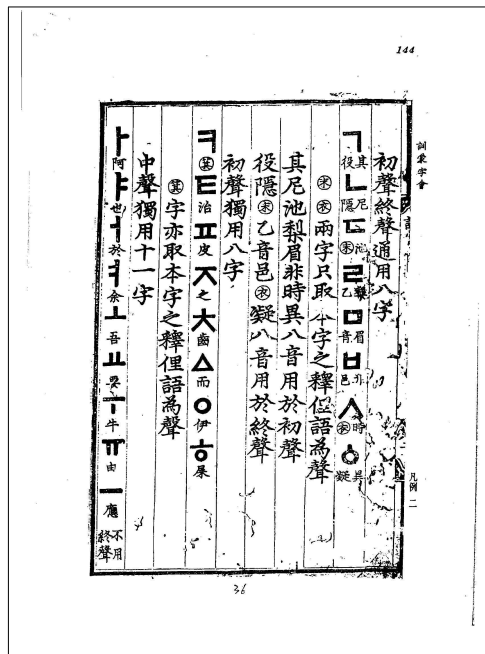 144
訓蒙字會
凡例 二
初聲終聲通用八字
ㄱ其役ㄴ尼隱ㄷ池末ㄹ梨乙ㅁ眉音ㅂ非邑ㅅ時衣ㆁ異凝
末衣兩字只取本字之釋俚語為聲
其尼池梨眉非時異八音用於初聲
役隱末乙音邑衣凝八音用於終聲
初聲獨用八字
ㅋ箕ㅌ治ㅍ皮ㅈ之ㅊ齒ㅿ而ㅇ伊ㅎ屎
箕字亦取本字之釋俚語為聲
中聲獨用十一字
ㅏ阿ㅑ也ㅓ於ㅕ余ㅗ吾ㅛ要ㅜ牛ㅠ由ㅡ應不用終聲
36